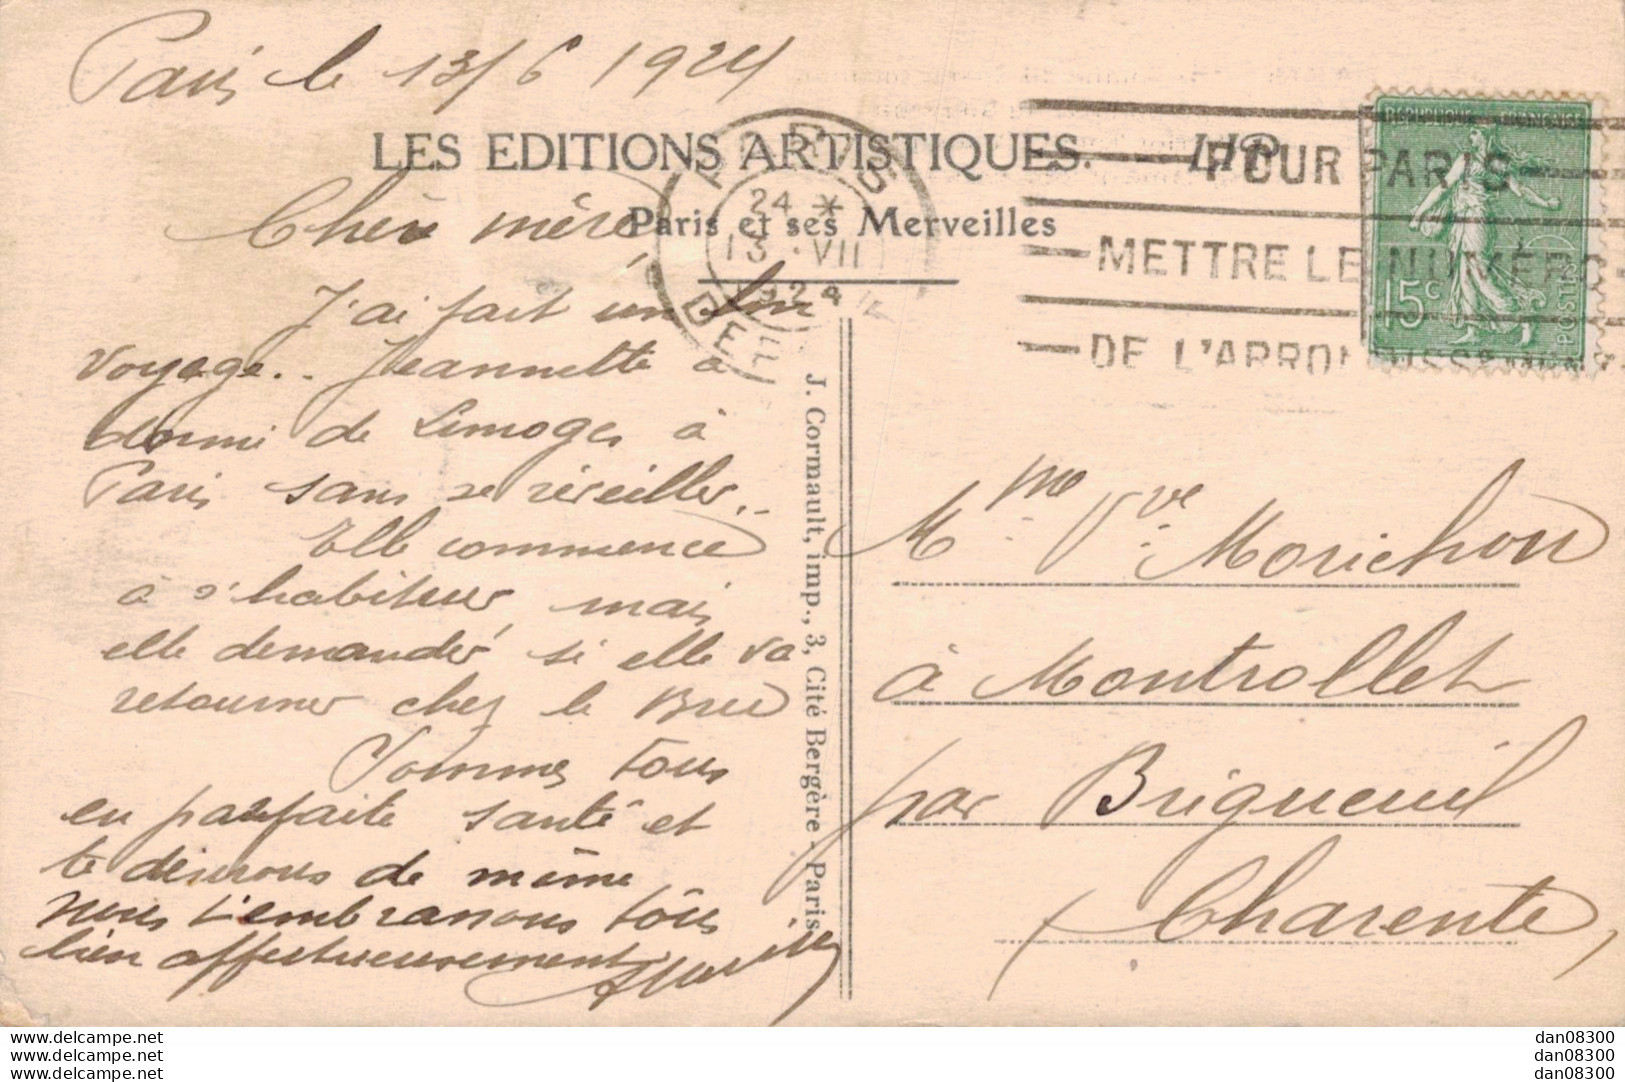 Paris le 13/6 1924
LES EDITIONS ARTISTIQUES. LIP
Paris et ses Merveilles
PARIS
24 *
13 · VII
1924
POUR PARIS
METTRE LE NUMÉRO
DE L'ARRONDISSEMENT
REPUBLIQUE FRANÇAISE
15c
POSTES
Chère mère
J'ai fait un bon
voyage.. Jeannette a
dormi de Limoges à
Paris sans se réveiller..
Elle commence
à s'habituer, mais
elle demande si elle va
retourner chez le
Sommes tous
en parfaite santé et
te désirons de même
Nous t'embrassons tous
bien affectueusement
J. Cormault, imp., 3, Cité Bergère - Paris
Mme Vve Morichon
à Montrollet
par Brigueuil
Charente,
www.delcampe.net
www.delcampe.net
www.delcampe.net
dan08300
dan08300
dan08300